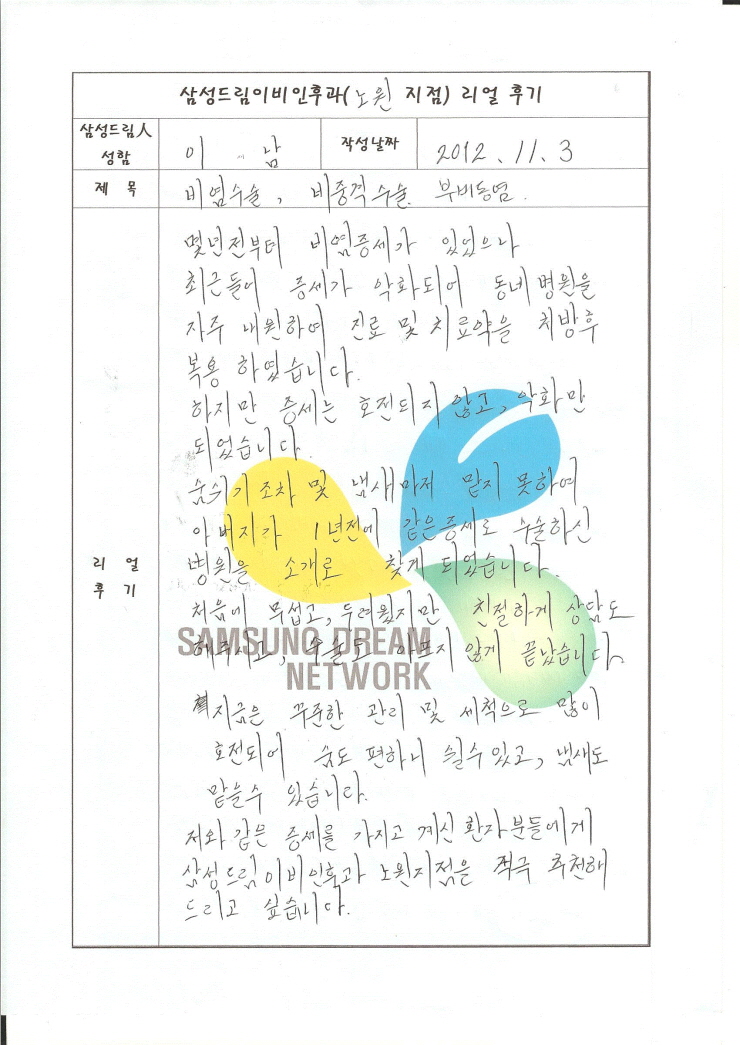 삼성드림이비인후과(노원 지점) 리얼 후기
삼성드림人 성함 이 남 작성날짜 2012. 11. 3
제 목 비염수술, 비중격수술. 부비동염.
리 얼 후 기
몇년전부터 비염증세가 있었으나
최근들어 증세가 악화되어 동네병원을
자주 내원하여 진료 및 치료약을 처방후
복용 하였습니다.
하지만 증세는 호전되지 않고, 악화만
되었습니다.
숨쉬기조차 및 냄새마저 맡지 못하여
아버지가 1년전에 같은증세로 수술하신
병원을 소개로 찾게 되었습니다.
처음에 무섭고, 두려웠지만 친절하게 상담도
해주시고, 수술도 아프지 않게 끝났습니다.
지금은 꾸준한 관리 및 세척으로 많이
호전되어 숨도 편하니 쉴수있고, 냄새도
맡을수 있습니다.
저와 같은 증세를 가지고 계신 환자분들에게
삼성드림이비인후과 노원지점을 적극 추천해
드리고 싶습니다.
SAMSUNG DREAM
NETWORK